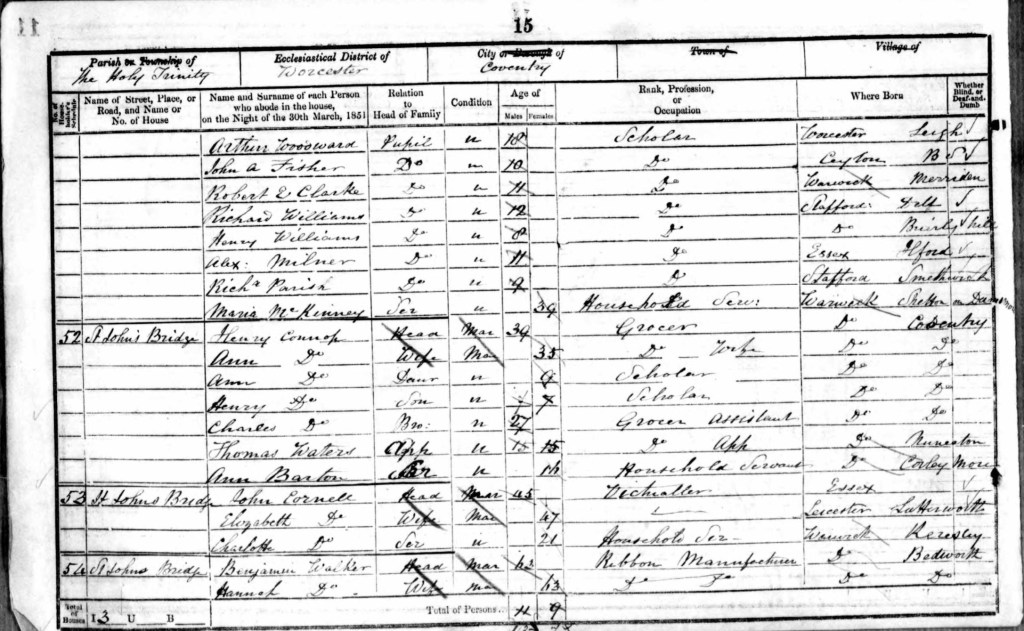 15
Parish or Township of Ecclesiastical District of City or Borough of Town of Village of
The Holy Trinity Worcester Coventry
No. of House-holder's Schedule Name of Street, Place, or Road, and Name or No. of House Name and Surname of each Person who abode in the house, on the Night of the 30th March, 1851 Relation to Head of Family Condition Age of Males Females Rank, Profession, or Occupation Where Born Whether Blind, or Deaf-and-Dumb
Arthur Woodward Pupil u 10 Scholar Worcester Leigh
John A Fisher Do u 10 Do Ceylon B S
Robert E Clarke Do u 11 Do Warwick Merriden
Richard Williams Do u 12 Do Stafford:
Henry Williams Do u 8 Do Do Brierly hill
Alex: Milner Do u 11 Do Essex Ilford
Richd Parish Do u 9 Do Stafford Smethwick
Maria McKinney Ser u 39 Household Serv: Warwick
52 St John's Bridge Henry Connop Head Mar 39 Grocer Do Coventry
Ann Do Wife Mar 35 Do Wife Do Do
Ann Do Daur u 9 Scholar Do Do
Henry Do Son u 7 Scholar Do Do
Charles Do Bro: u 27 Grocer Assistant Do Do
Thomas Waters App u 15 15 Do App Do Nuneaton
Ann Barton Ser u 16 Household Servant Do Corley Moor
53 St Johns Bridge John Cornell Head Mar 45 Victualler Essex
Elizabeth Do Wife Mar 47 Leicester Lutterworth
Charlotte Do Ser u 21 Household Ser Warwick Keresley
54 St Johns Bridge Benjamin Walker Head Mar 62 Ribbon Manufacturer Do Bedworth
Hannah Do Wife Mar 63 Do Do Do Do
Total of Houses I 3 U B Total of Persons... 11 9